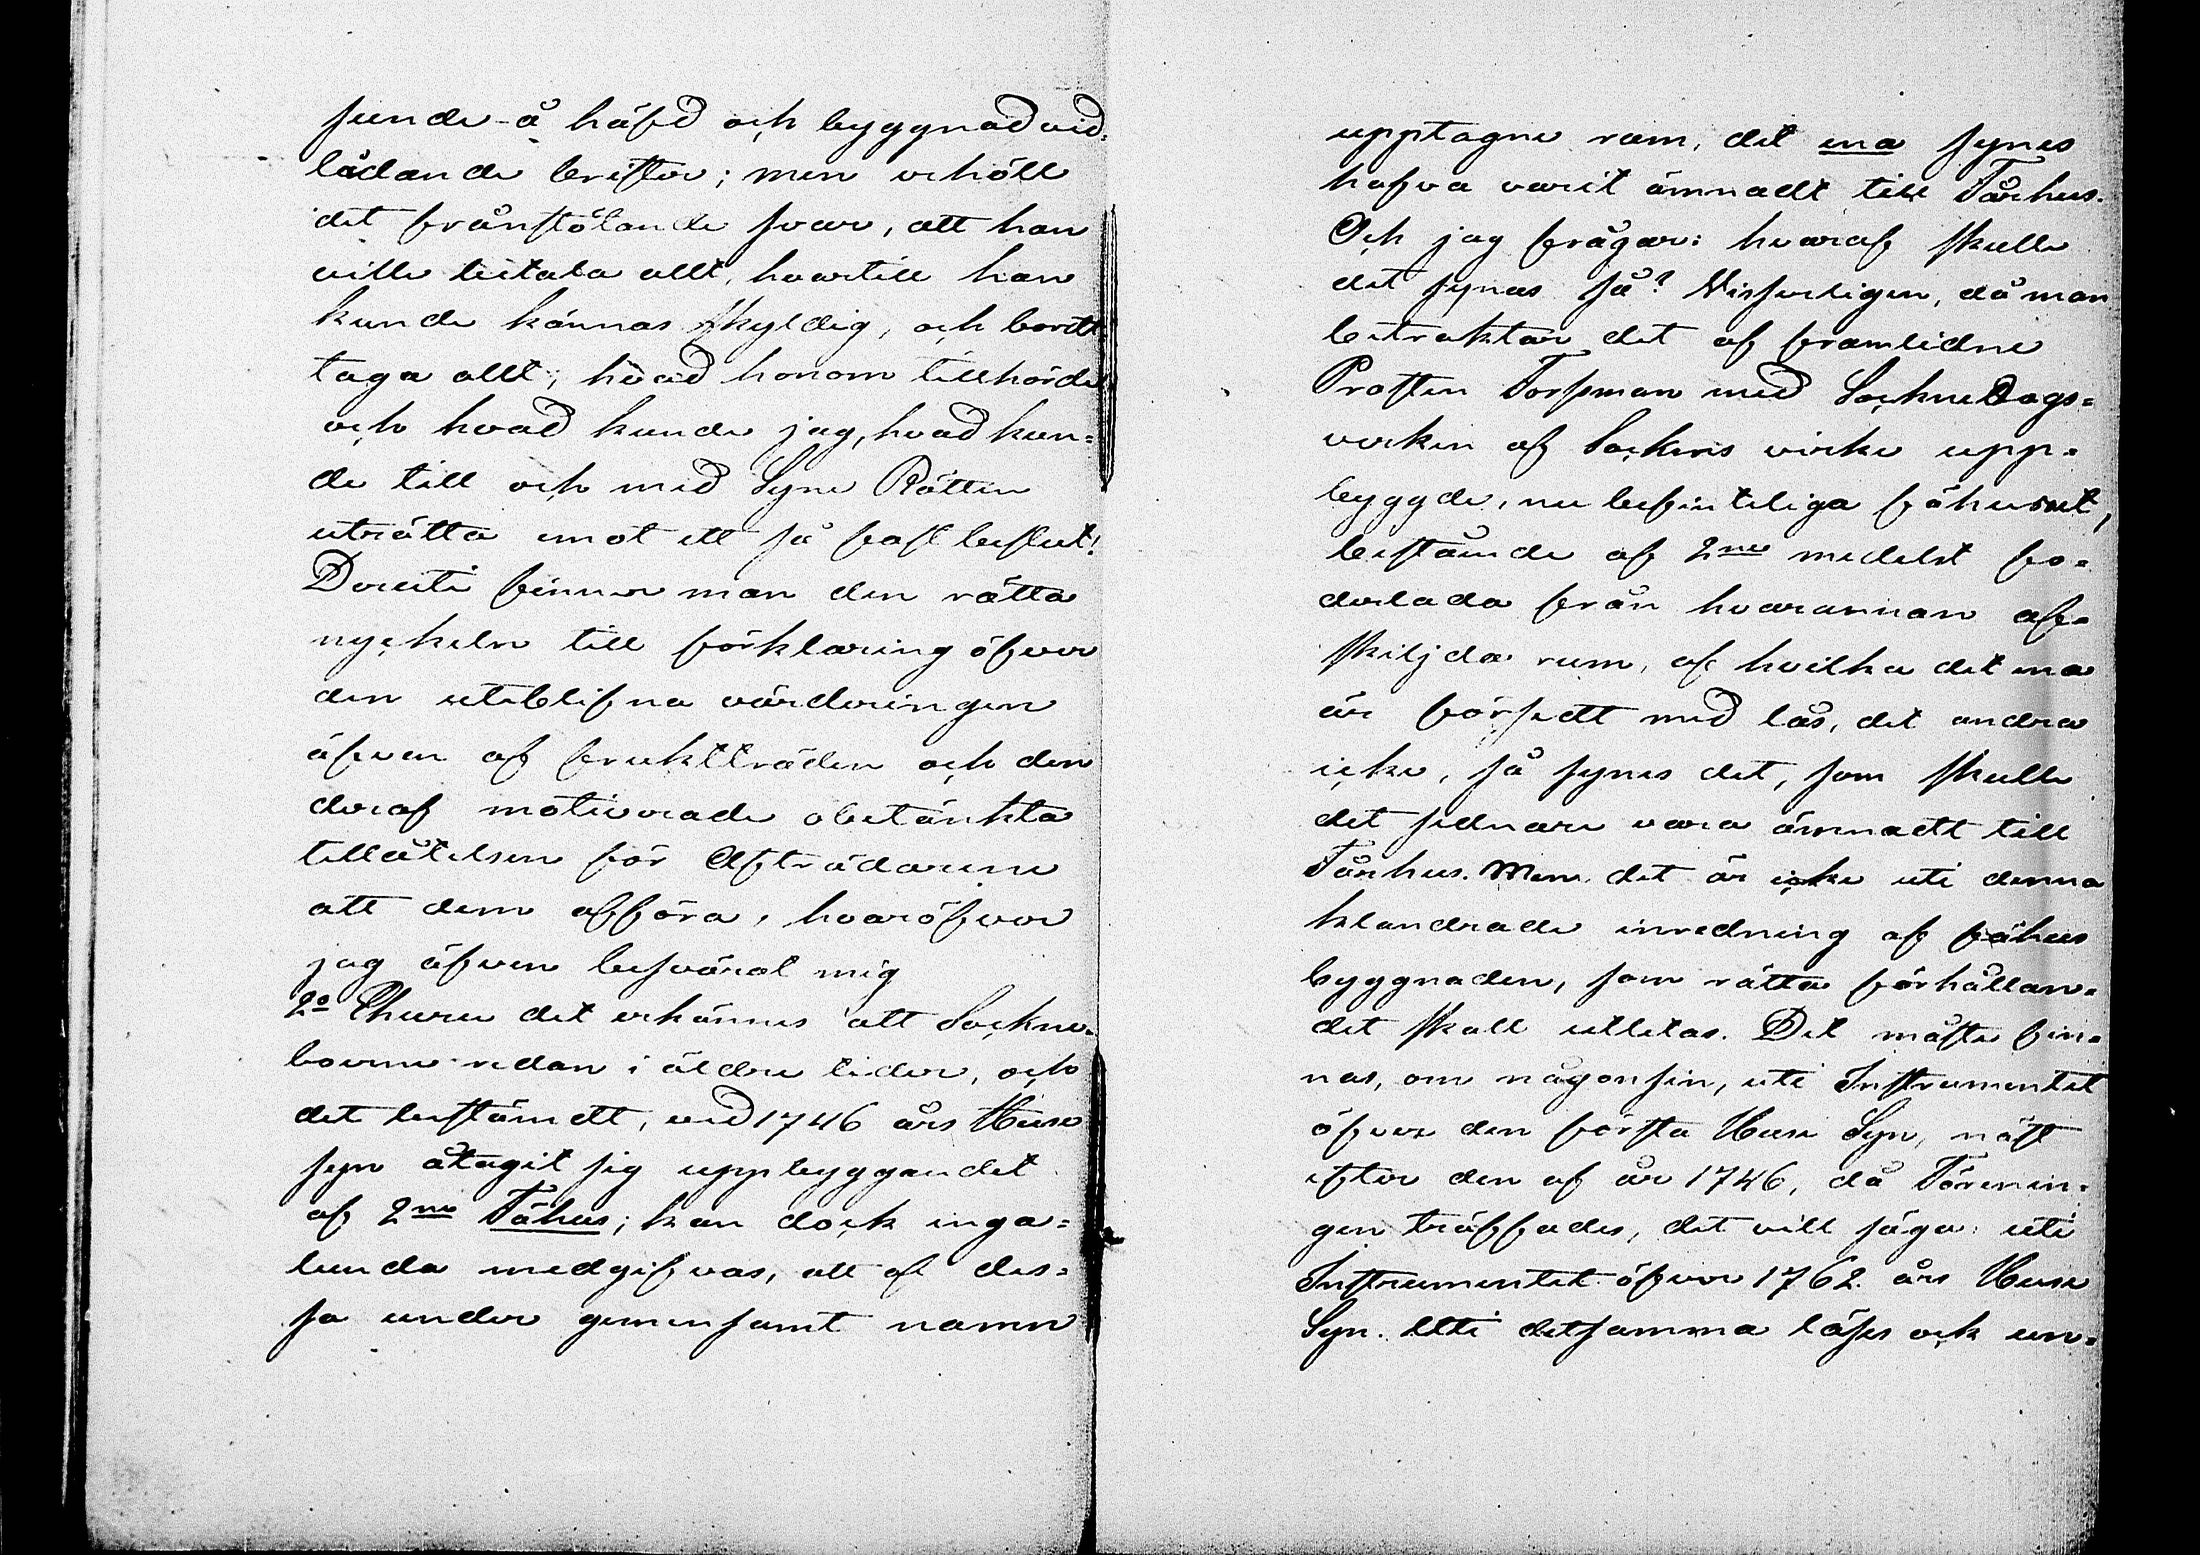 sunde å häfd och byggnad vid¬
lådande brister; men erhöll
det frånstötande svar, att han
ville betala allt, hvartill han
kunde kännas skyldig, och bortt
taga allt, hvad honom tillhörde
och hvad kunde jag, hvad kun¬
de till och med Syne Rätten
uträtta emot ett så fast beslut!
Deruti finner man den rätta
nyckeln till förklaring öfver
den uteblifna värderingen
äfven af fruktträden och den
deraf motiverade obetänkta
tillåtelsen för Afträdarene
att dem afföra, hvaröfver
jag äfven besvärat mig
2o Ehuru det erkännes att Sockne¬
boerne redan i äldre tider, och
det bestämdt, vid 1746 års Huse
syn åtagit sig uppbyggandet
af 2ne Fähus; kan dock inga¬
lunda medgifvas, att af des¬
sa under gemensamt namn
upptagne rum, det ena synes
hafva varit ämnadt till Fårhus.
Och jag frågar: hvaraf skulle
det synas så? Visserligen, då man
betraktar det af framlidne
Prosten Forssman med Sockne Dags¬
verken af Sockens virke upp¬
byggde, nu befintliga fähuset,
bestående af 2ne medelst fo¬
derlada från hvarannan af¬
skiljda rum, af hvilka det ena
är försedt med lås, det andra
icke, så synes det, som skulle
det sednare vara ämnadt till
Fårhus. Men det är icke uti denna
klandrade inredning af fähus
byggnaden, som rätta förhållan¬
det skall utletas. Det måste fin¬
nas, om någonsin, uti Instrumentet
öfver den första Huse Syn, näst
efter den af år 1746, då Förenin¬
gen träffades, det vill säga: uti
Instrumentet öfver 1762 års Huse
Syn. Uti detsamma läses ock un¬